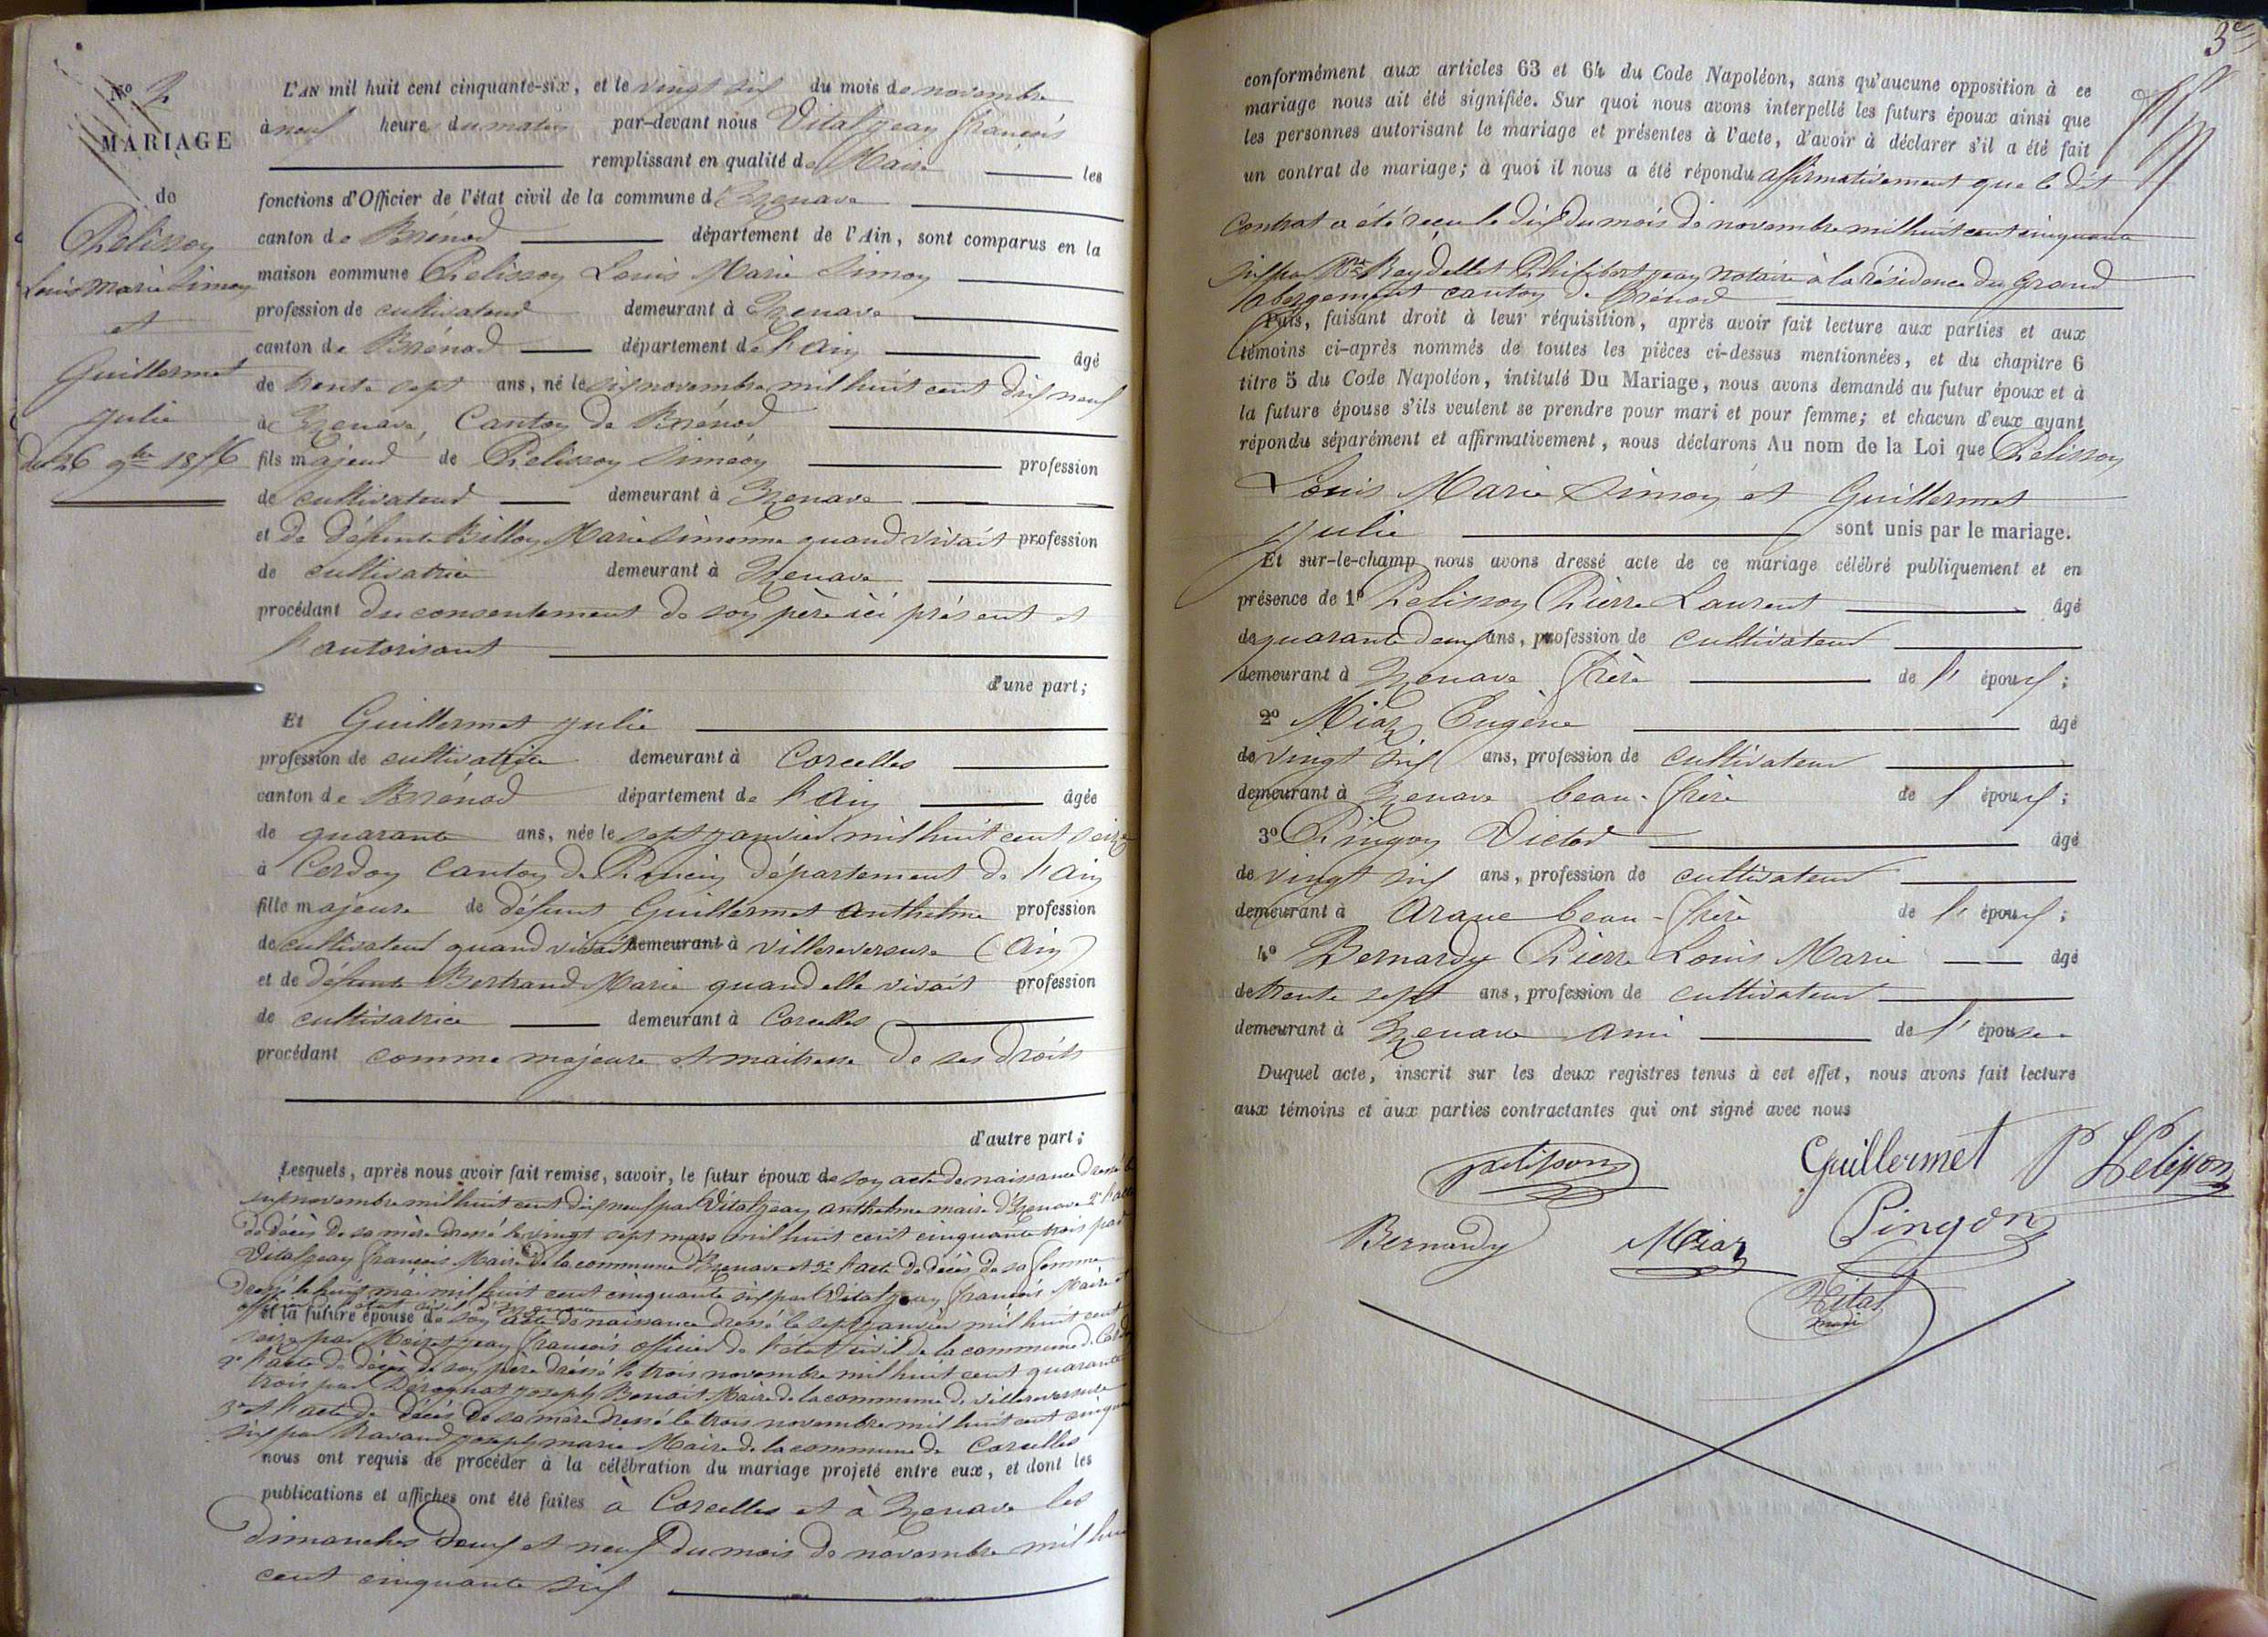 N° 2
MARIAGE
de
Pelisson
Louis Marie Simon
et
Guillermet
Julie
du 26 9bre 1856
L'AN mil huit cent cinquante-six, et le vingt six du mois de novembre
à neuf heures du matin par-devant nous Vital Jean François
remplissant en qualité de Maire les
fonctions d'Officier de l'état civil de la commune d'Izenave
canton de Brénod département de l'Ain, sont comparus en la
maison commune Pelisson Louis Marie Simon
profession de cultivateur demeurant à Izenave
canton de Brénod département de l'Ain âgé
de trente sept ans, né le six novembre mil huit cent dix neuf
à Izenave, Canton de Brénod
fils majeur de Pelisson Siméon profession
de cultivateur demeurant à Izenave
et de défunte Billon Marie Simonne quand vivait profession
de cultivatrice demeurant à Izenave
procédant du consentement de son père ici présent et
l'autorisant
d'une part;
Et Guillermet Julie
profession de cultivatrice demeurant à Corcelles
canton de Brénod département de l'Ain âgée
de quarante ans, née le sept janvier mil huit cent seize
à Cerdon Canton de Poncin département de l'Ain
fille majeure de défunt Guillermet Anthelme profession
de cultivateur quand vivait demeurant à Villereversure (Ain)
et de défunte Bertrand Marie quand elle vivait profession
de cultivatrice demeurant à Corcelles
procédant comme majeure et maitresse de ses droits
d'autre part;
Lesquels, après nous avoir fait remise, savoir, le futur époux de son acte de naissance dressé le
six novembre mil huit cent dix neuf par Vital Jean Anthelme maire d'Izenave 2° l'acte
de décès de sa mère dressé le vingt sept mars mil huit cent cinquante trois par
Vital Jean François Maire de la commune d'Izenave et 3° l'acte de décès de sa femme
dressé le huit mai mil huit cent cinquante six par Vital Jean François Maire et
officier de l'état civil d'Izenave
et la future épouse de son acte de naissance dressé le sept janvier mil huit cent
seize par Jean François officier de l'état civil de la commune de Cerdon
2° l'acte de décès de son père dressé le trois novembre mil huit cent quarante
trois par Joseph Benoit Maire de la commune de Villereversure
3° et l'acte de décès de sa mère dressé le trois novembre mil huit cent cinquante
six par Ravaud Joseph Marie Maire de la commune de Corcelles
nous ont requis de procéder à la célébration du mariage projeté entre eux, et dont les
publications et affiches ont été faites à Corcelles et à Izenave les
dimanches deux et neuf du mois de novembre mil huit
cent cinquante six
3e
conformément aux articles 63 et 64 du Code Napoléon, sans qu'aucune opposition à ce
mariage nous ait été signifiée. Sur quoi nous avons interpellé les futurs époux ainsi que
les personnes autorisant le mariage et présentes à l'acte, d'avoir à déclarer s'il a été fait
un contrat de mariage; à quoi il nous a été répondu affirmativement que le dit
Contrat a été reçu le dix du mois de novembre mil huit cent cinquante
six par Me Reydellet Philibert Jean notaire à la résidence du Grand
Abergement canton de Brénod
Puis, faisant droit à leur réquisition, après avoir fait lecture aux parties et aux
témoins ci-après nommés de toutes les pièces ci-dessus mentionnées, et du chapitre 6
titre 5 du Code Napoléon, intitulé Du Mariage, nous avons demandé au futur époux et à
la future épouse s'ils veulent se prendre pour mari et pour femme; et chacun d'eux ayant
répondu séparément et affirmativement, nous déclarons Au nom de la Loi que Pelisson
Louis Marie Simon et Guillermet
Julie sont unis par le mariage.
Et sur-le-champ nous avons dressé acte de ce mariage célébré publiquement et en
présence de 1° Pelisson Pierre Laurent âgé
de quarante deux ans, profession de cultivateur
demeurant à Izenave frère de l'époux;
2° Miaz Eugène âgé
de vingt six ans, profession de cultivateur
demeurant à Izenave beau-frère de l'époux;
3° Pingon Victor âgé
de vingt six ans, profession de cultivateur
demeurant à Arane beau-frère de l'époux;
4° Bernardy Pierre Louis Marie âgé
de trente sept ans, profession de cultivateur
demeurant à Izenave ami de l'épouse.
Duquel acte, inscrit sur les deux registres tenus à cet effet, nous avons fait lecture
aux témoins et aux parties contractantes qui ont signé avec nous
pelisson Guillermet P Pelisson
Bernardy Miaz Pingon
Vital
maire